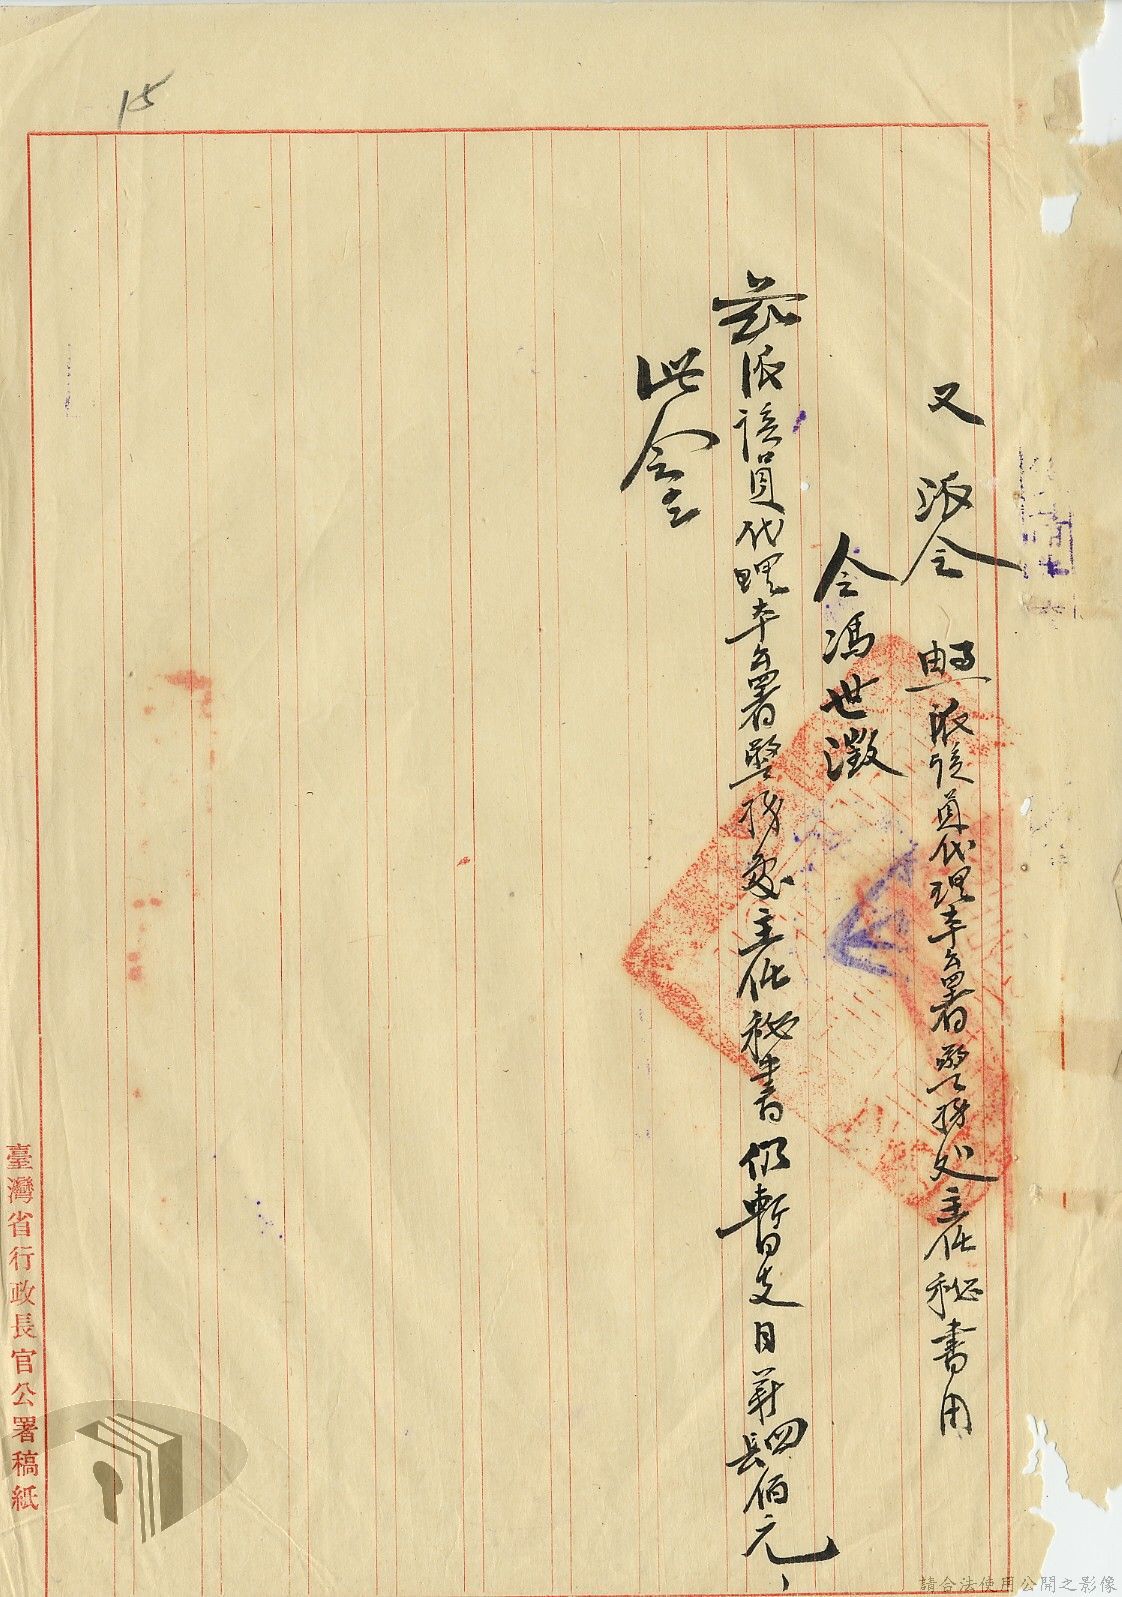 15
又派令 照派該員代理本公署警務处主任秘書由
令馮世澂
茲派該員代理本公署警務處主任秘書仍暫支月薪四佰元
此令
臺灣省行政長官公署稿紙
請合法使用公開之影像